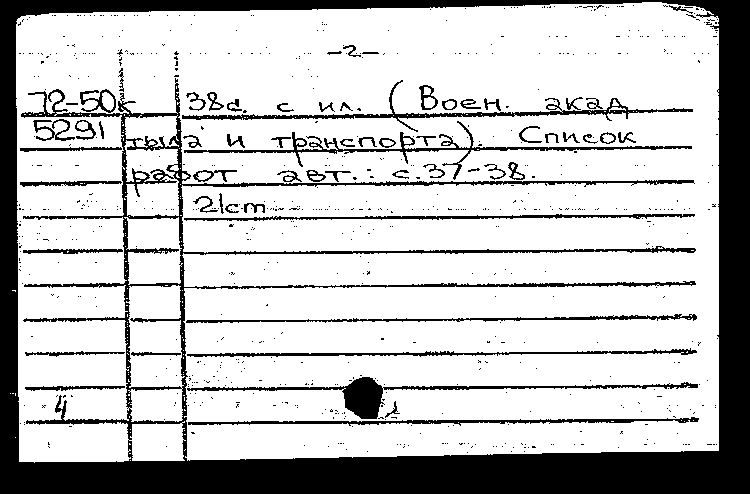 -2-
72-50к 38с. с ил. (Воен. акад
5291 тыла и транспорта). Список
работ авт.: с.37-38.
21cm
4